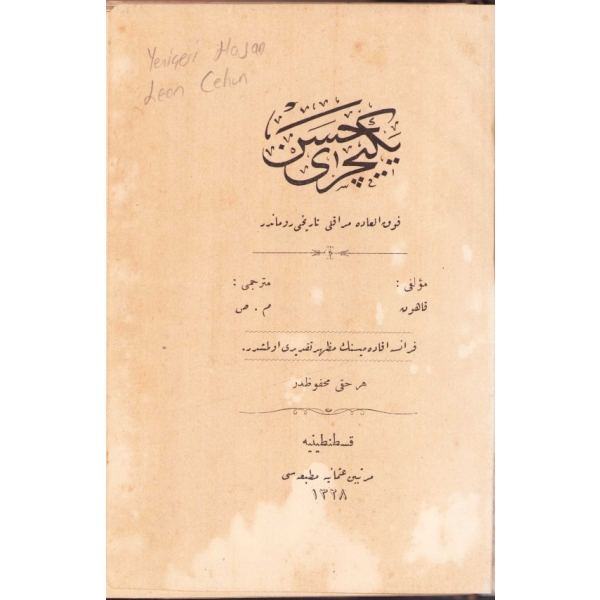 Yeniçeri Hasan
Leon Cahun
یکیچری حسن
فوق العاده مراقلی تاریخی روماندر
مؤلفی : مترجمی :
قاهون م . ص
فرانسه اقاده میسنك مظهر تقدیری اولمشدر.
هر حقی محفوظدر
قسطنطینیه
مرتبین عثمانیه مطبعه سی
١٣٢٨